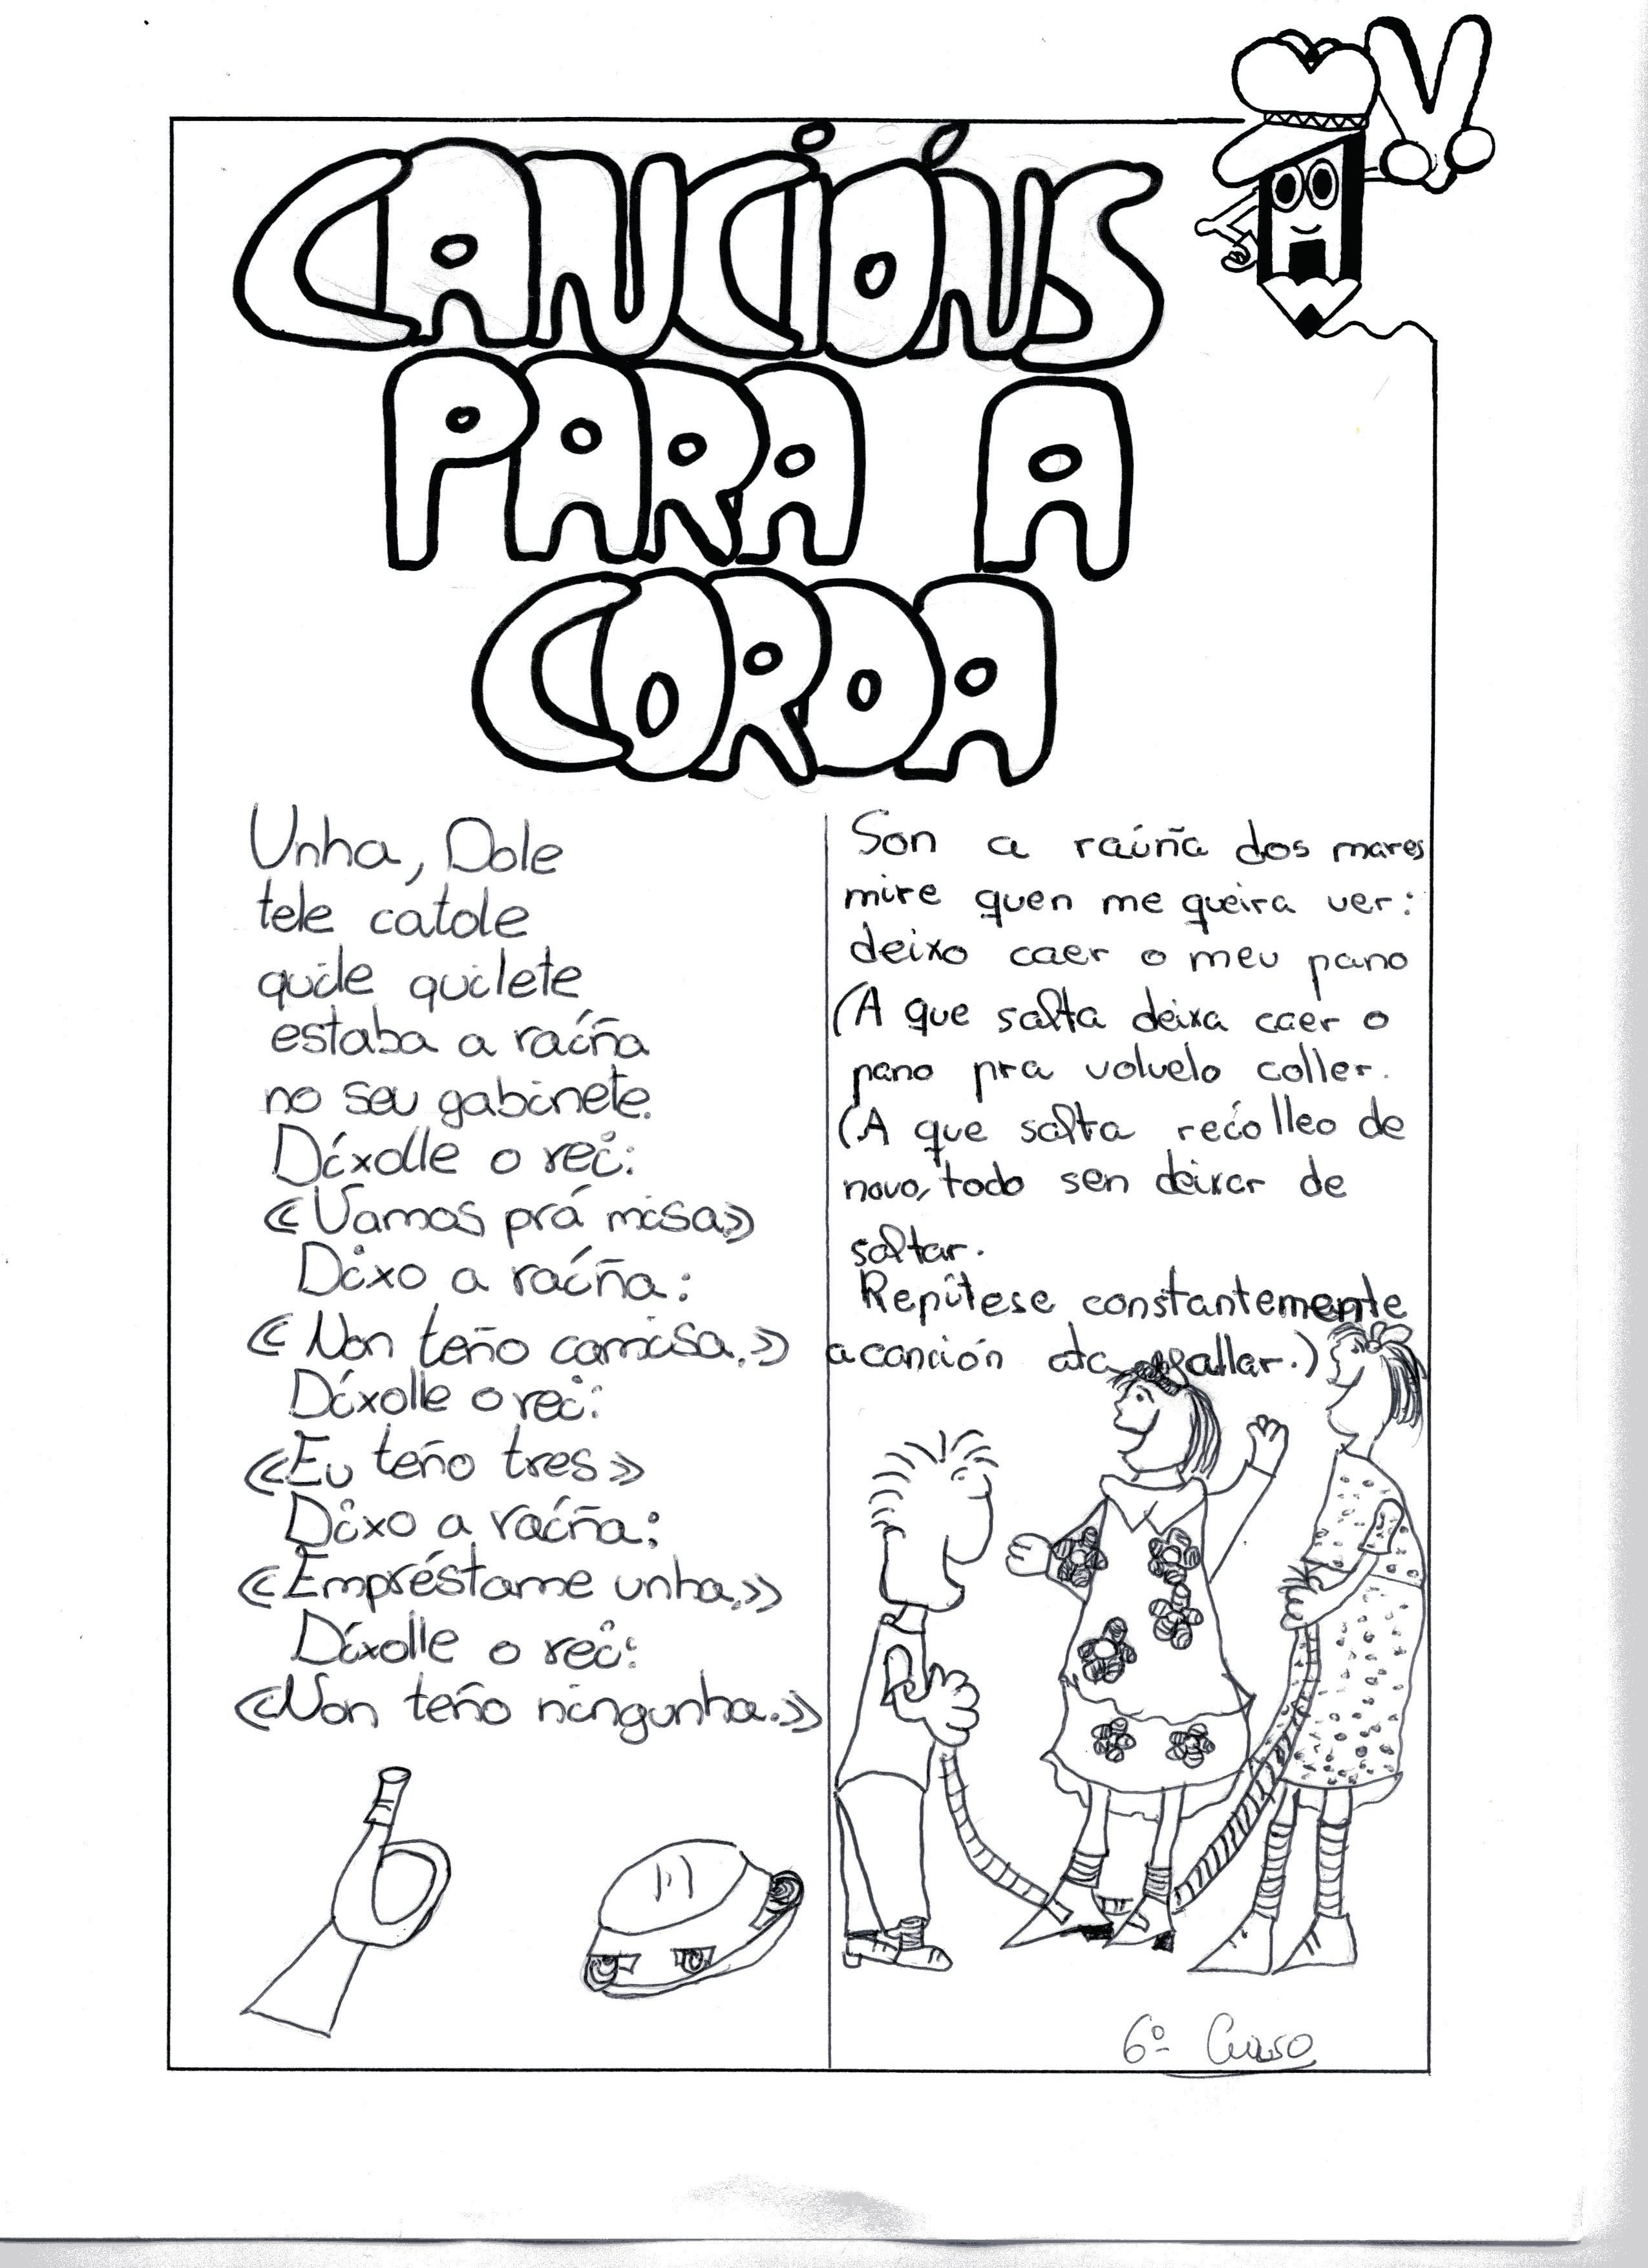 CANCIÓNS
PARA A
CORDA
Unha, Dole
tele catole
quile quilete
estaba a raíña
no seu gabinete.
Díxolle o rei:
«Vamos prá misa»
Dixo a raíña:
«Non teño camisa.»
Díxolle o rei:
«Eu teño tres»
Dixo a raíña:
«Empréstame unha.»
Díxolle o rei:
«Non teño ningunha.»
Son a raíña dos mares
mire quen me queira ver:
deixo caer o meu pano
(A que salta deixa caer o
pano pra volvelo coller.
(A que salta recólleo de
novo, todo sen deixar de
saltar.
Repítese constantemente
a canción ata fallar.)
6º Curso